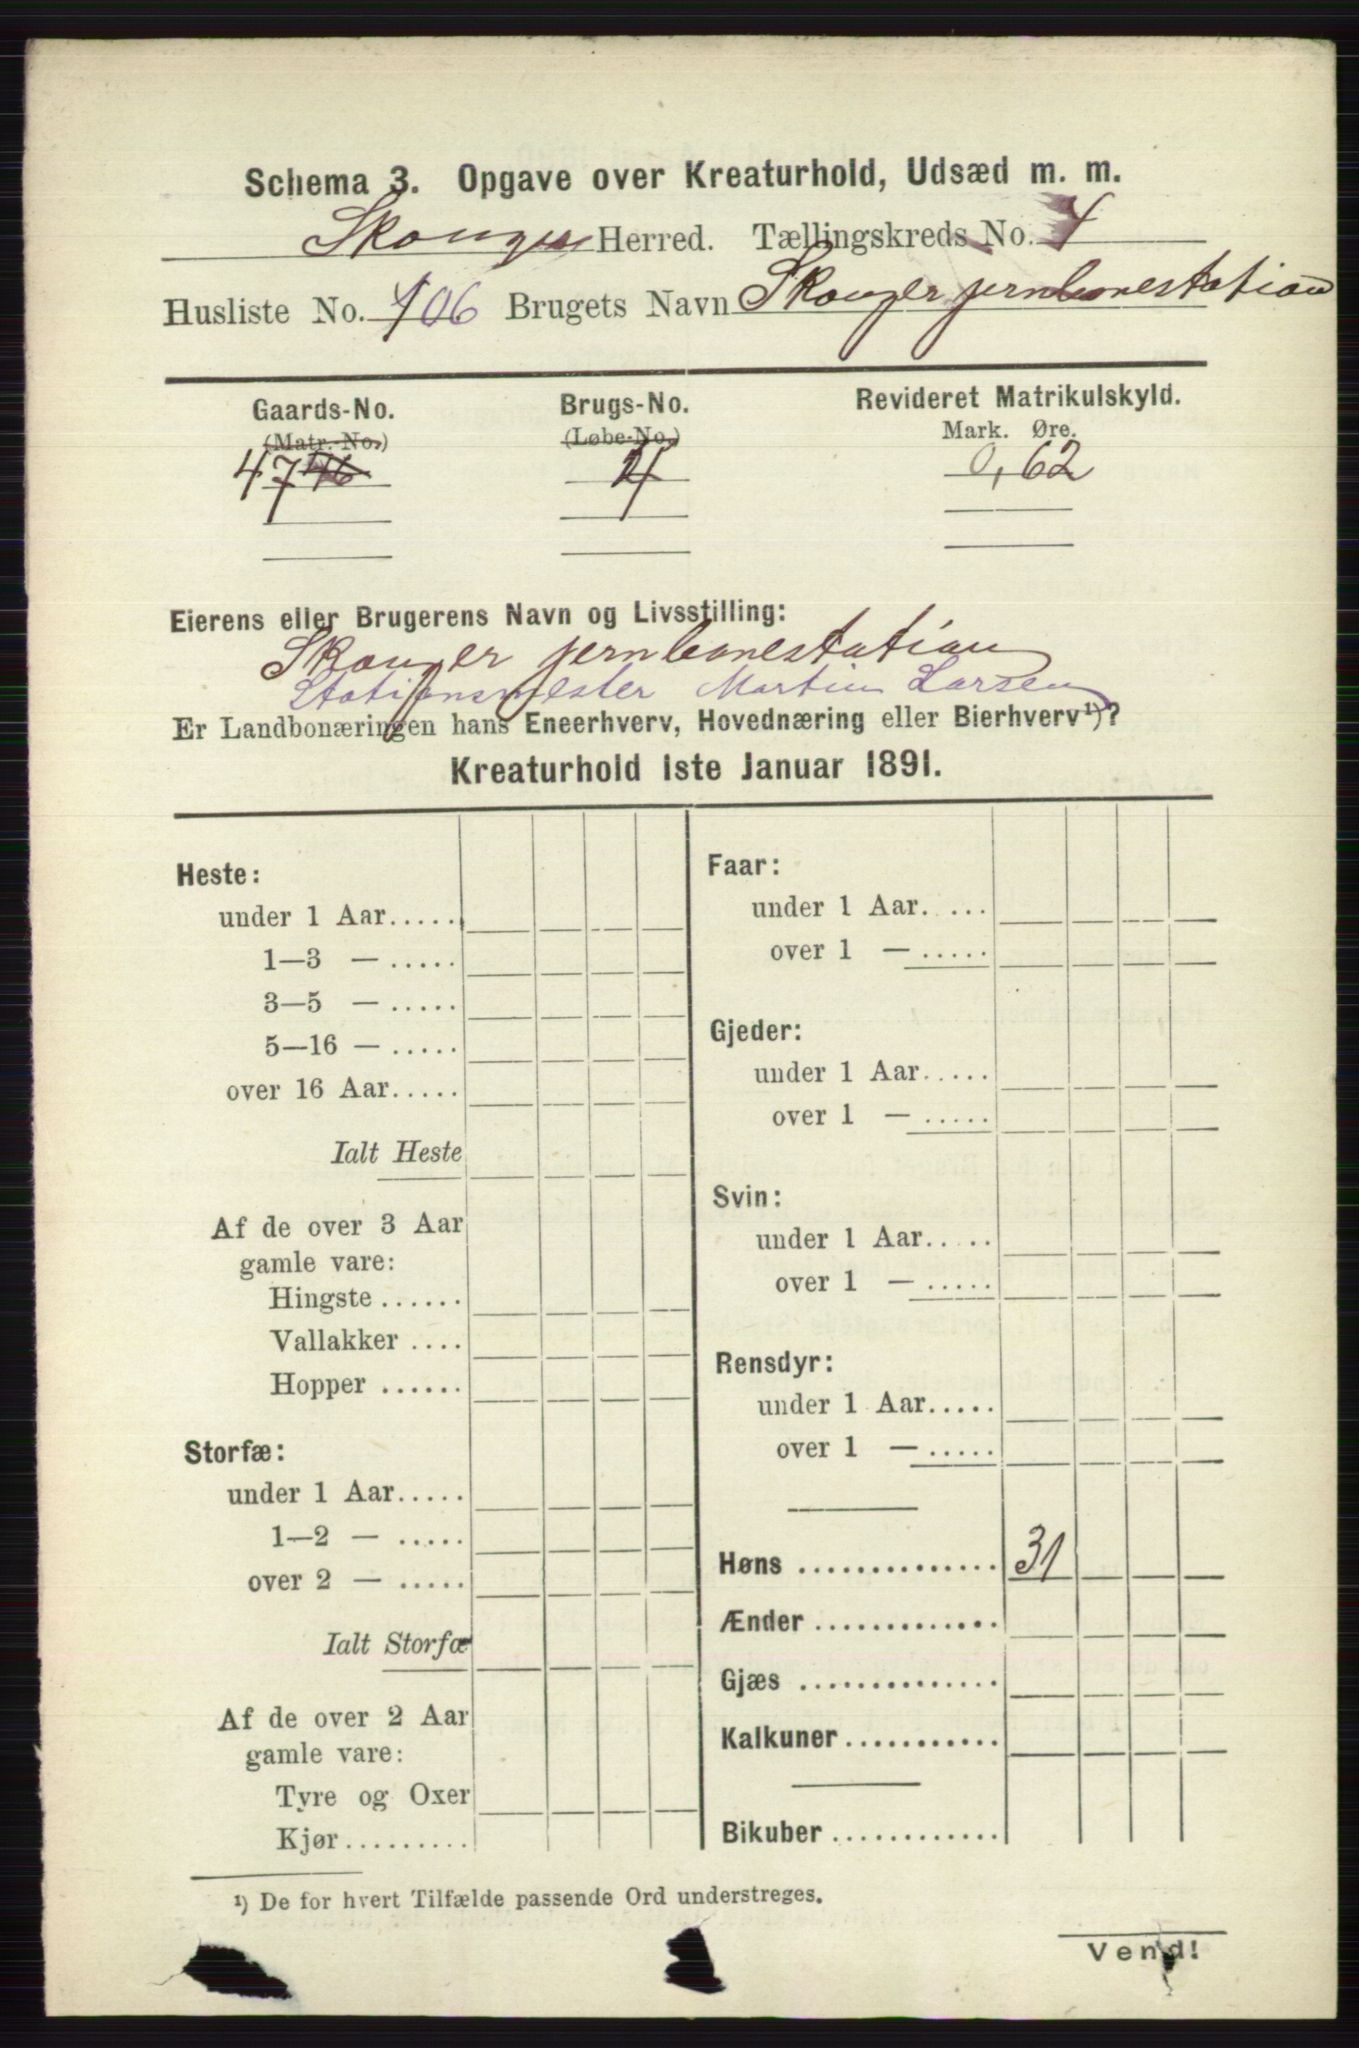 Schema 3. Opgave over Kreaturhold, Udsæd m. m.
Skouger Herred. Tællingskreds No. 4
Husliste No. 106 Brugets Navn Skouger jernbanestation
Gaards-No. Brugs-No. Revideret Matrikulskyld.
(Matr.-No.) (Løbe-No.) Mark. Øre.
47 46 4 0,62
Eierens eller Brugerens Navn og Livsstilling:
Skouger jernbanestation
Stationsmester Martin Larsen
Er Landbonæringen hans Eneerhverv, Hovednæring eller Bierhverv¹)?
Kreaturhold 1ste Januar 1891.
Heste:
under 1 Aar.....
1—3 — .....
3—5 — .....
5—16 — .....
over 16 Aar.....
Ialt Heste
Af de over 3 Aar
gamle vare:
Hingste ......
Vallakker ....
Hopper ......
Storfæ:
under 1 Aar.....
1—2 — .....
over 2 — .....
Ialt Storfæ
Af de over 2 Aar
gamle vare:
Tyre og Oxer
Kjør.........
Faar:
under 1 Aar.....
over 1 — .....
Gjeder:
under 1 Aar.....
over 1 — .....
Svin:
under 1 Aar.....
over 1 — .....
Rensdyr:
under 1 Aar.....
over 1 — .....
Høns .............. 31
Ænder .............
Gjæs ..............
Kalkuner...........
Bikuber ............
¹) De for hvert Tilfælde passende Ord understreges.
Vend!